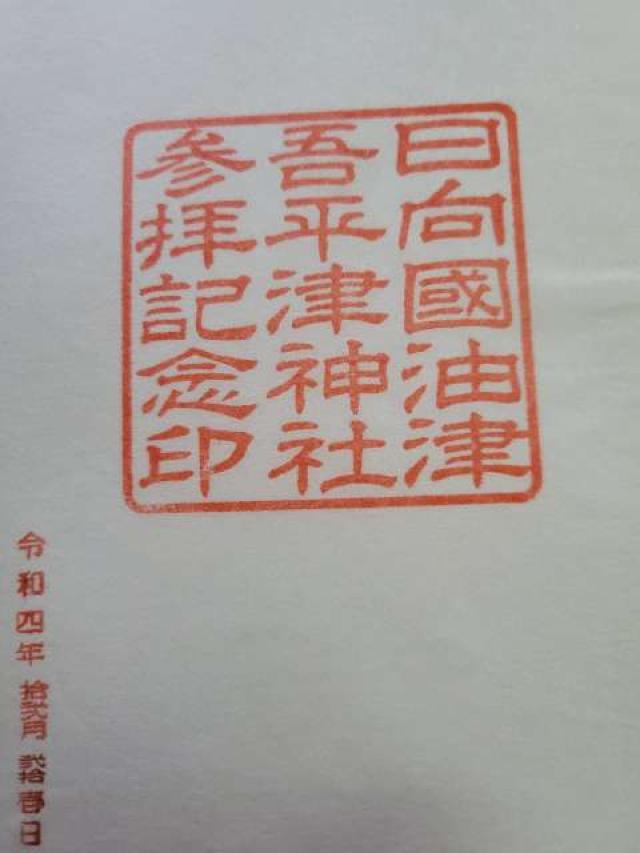 日向國油津
吾平津神社
参拝記念印
令和四年 拾弐月 弐拾壱日